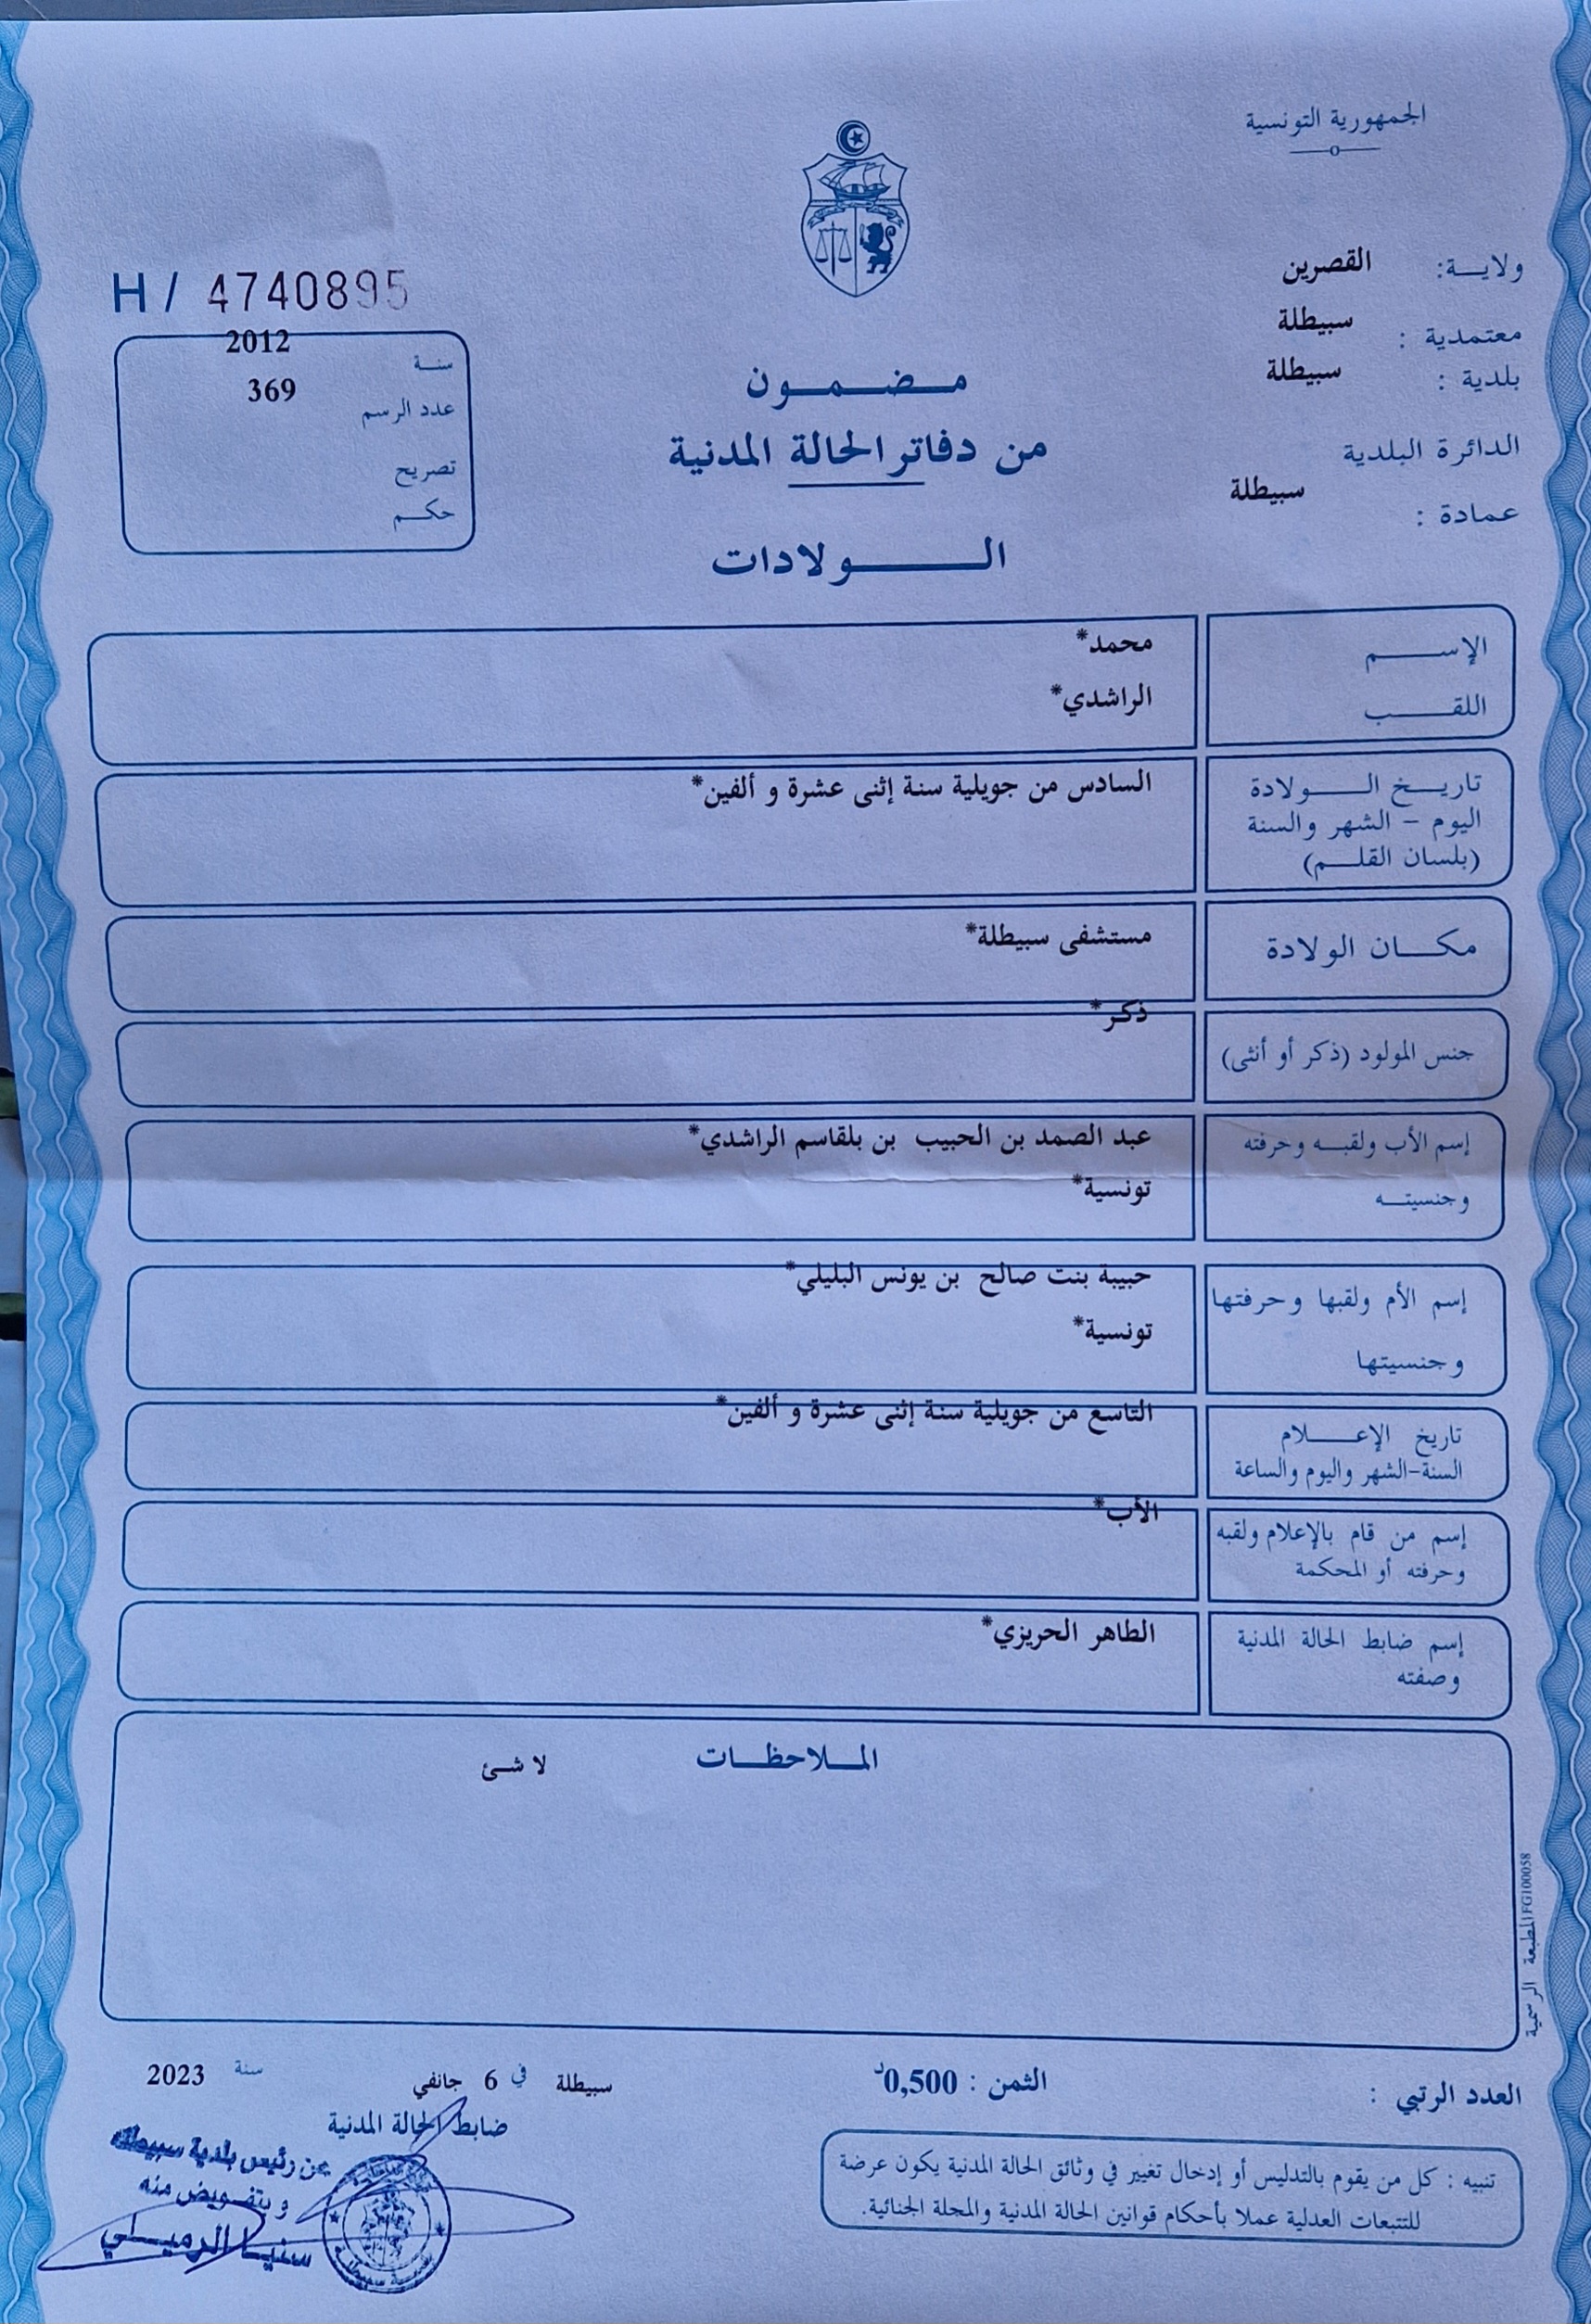 الجمهورية التونسية
ولايـــة: القصرين
معتمدية : سبيطلة
بلدية : سبيطلة
الدائرة البلدية
عمادة : سبيطلة
H/ 4740895
سنـــة 2012
عدد الرسم 369
تصريح
حكـــم
مـضـمـون
من دفاتر الحالة المدنية
الـــولادات
الإســـم محمد*
اللقـــب الراشدي*
تاريـــخ الـــولادة السادس من جويلية سنة إثنى عشرة و ألفين*
اليوم - الشهر والسنة
(بلسان القلـــم)
مكـــان الولادة مستشفى سبيطلة*
جنس المولود (ذكر أو أنثى) ذكر*
إسم الأب ولقبـــه وحرفته عبد الصمد بن الحبيب بن بلقاسم الراشدي*
وجنسيتـــه تونسية*
إسم الأم ولقبها وحرفتها حبيبة بنت صالح بن يونس البليلي*
وجنسيتها تونسية*
تاريخ الإعـــلام التاسع من جويلية سنة إثنى عشرة و ألفين*
السنة-الشهر واليوم والساعة
إسم من قام بالإعلام ولقبه الأب*
وحرفته أو المحكمة
إسم ضابط الحالة المدنية الطاهر الحريزي*
وصفته
المـــلاحظـــات لا شئ
المطبعة الرسمية FG100058
العدد الرتبي :
الثمن : 0,500د
سبيطلة في 6 جانفي سنة 2023
ضابط الحالة المدنية
عن رئيس بلدية سبيطلة
و بتفـويض منه
سنيـا الرميـلي
تنبيه : كل من يقوم بالتدليس أو إدخال تغيير في وثائق الحالة المدنية يكون عرضة
للتتبعات العدلية عملا بأحكام قوانين الحالة المدنية والمجلة الجنائية.